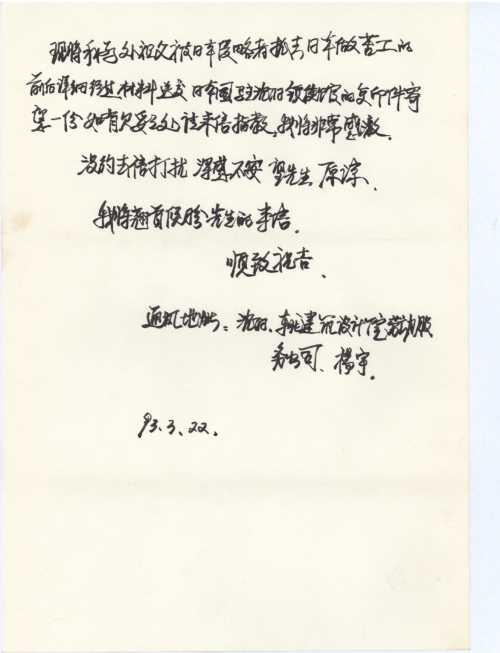 现将我与外祖父被日本侵略者抓去日本做苦工的
前后详细经过材料送交日本国驻沈阳领事馆的复印件寄
望一份如有欠妥之处请来信指教,我将非常感激.
没约去信打扰 深感不安 望先生 原谅.
我将翘首以盼先生的来信.
顺致祝吉.
通讯地址:沈阳.东北建筑设计院劳动服
务公司、杨宇.
93.3.22.